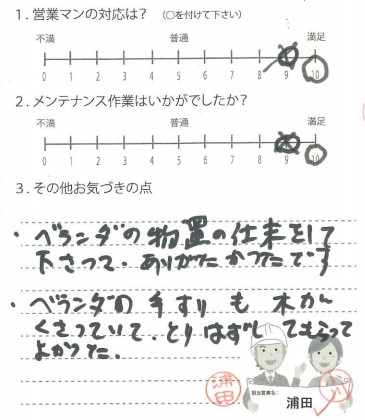 1. 営業マンの対応は? （○を付けて下さい）
不満 普通 満足
0 1 2 3 4 5 6 7 8 9 10
2. メンテナンス作業はいかがでしたか?
不満 普通 満足
0 1 2 3 4 5 6 7 8 9 10
3. その他お気づきの点
・ベランダの物置の仕末をして
下さって、ありがたかったです
・ベランダの手すりも木が
くさっていて、とりはずしてもらって
よかった。
担当営業名:
浦田
浦田